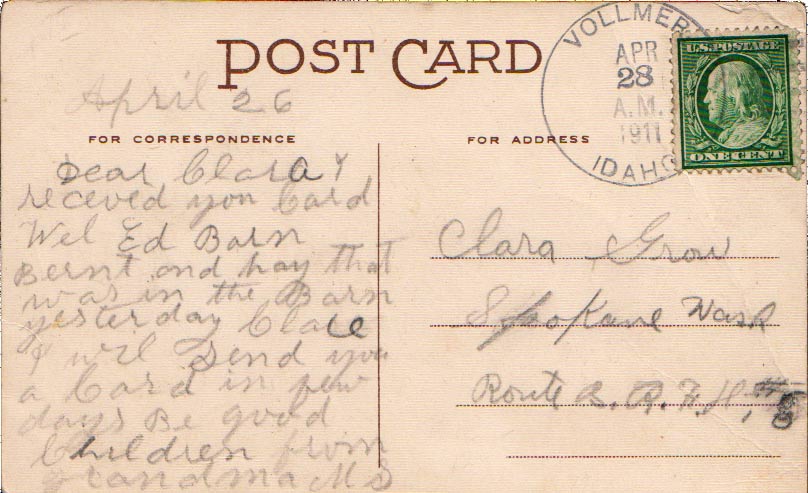 POST CARD
April 26
FOR CORRESPONDENCE
Dear Clara I
receved you Card
Wel Ed Barn
Bernt and hay that
was in the Barn
yesterday
I wil Send you
a Card in few
days Be good
Children from
grandma MS
VOLLMER
APR
28
A.M.
1911
IDAHO
U.S. POSTAGE
ONE CENT
FOR ADDRESS
Clara Grow
Spokane Wash
Route